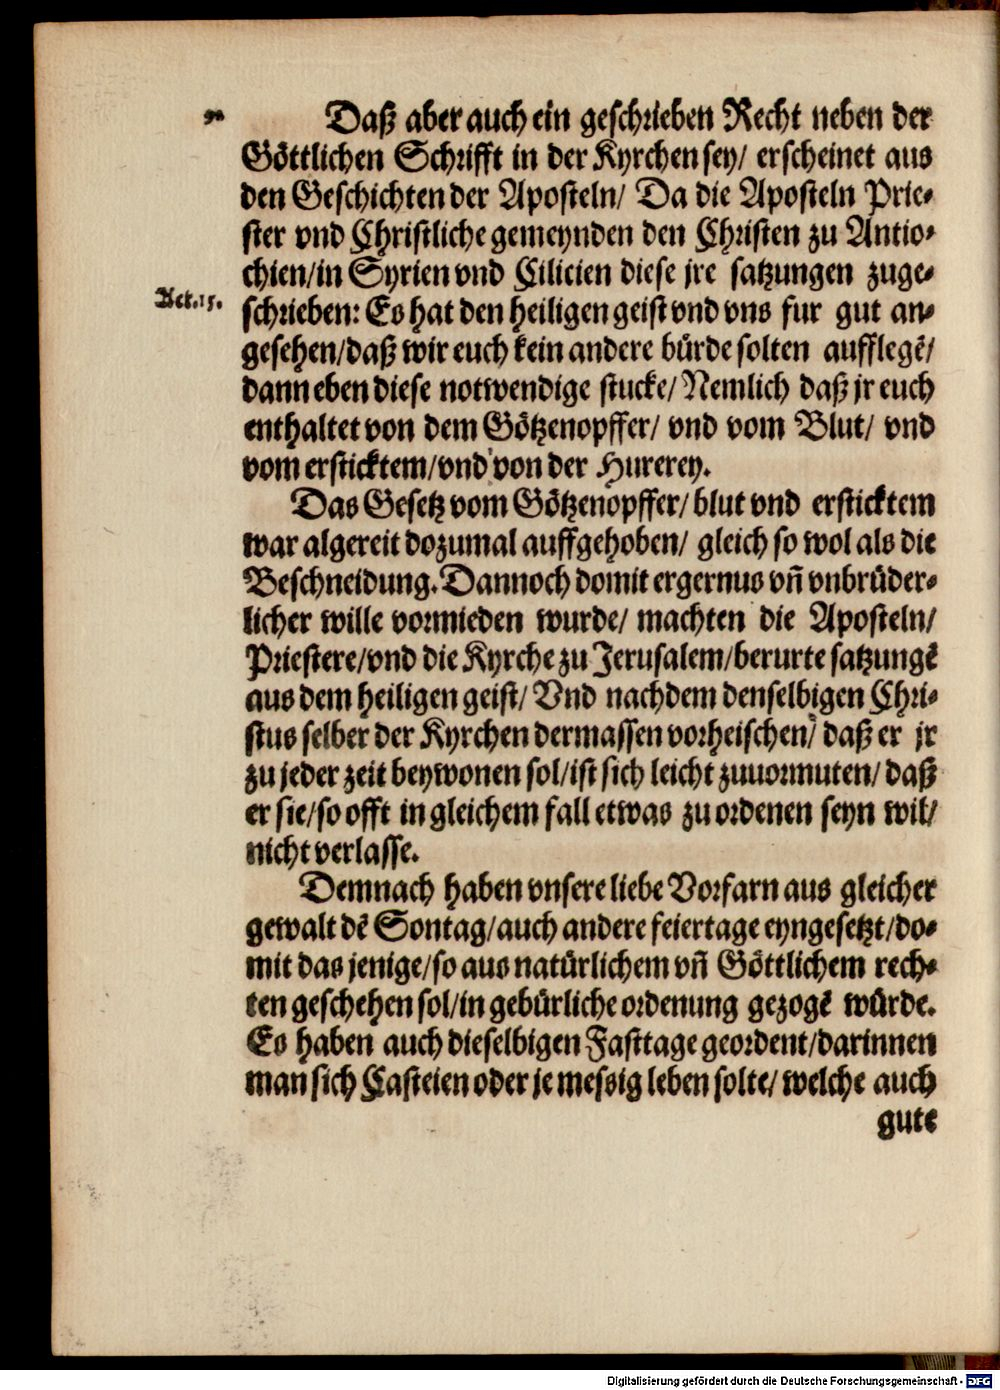 Daß aber auch ein geschrieben Recht neben der
Göttlichen Schrifft in der Kyrchen sey/ erscheinet aus
den Geschichten der Aposteln/ Da die Aposteln Prie⸗
ster vnd Christliche gemeynden den Christen zu Antio⸗
chien/in Syrien vnd Cilicien diese jre satzungen zuge⸗
Act.15.
schrieben: Es hat den heiligen geist vnd vns fur gut an⸗
gesehen/daß wir euch kein andere bürde solten aufflegē/
dann eben diese notwendige stucke/ Nemlich daß jr euch
enthaltet von dem Götzenopffer/ vnd vom Blut/ vnd
vom ersticktem/vnd von der Hurerey.
Das Gesetz vom Götzenopffer/ blut vnd ersticktem
war algereit dozumal auffgehoben/ gleich so wol als die
Beschneidung. Dannoch domit ergernus vñ vnbrüder⸗
licher wille vormieden wurde/ machten die Aposteln/
Priestere/vnd die Kyrche zu Jerusalem/berurte satzungē
aus dem heiligen geist/ Vnd nachdem denselbigen Chri⸗
stus selber der Kyrchen dermassen vorheischen/ daß er jr
zu jeder zeit beywonen sol/ist sich leicht zuuormuten/ daß
er sie/so offt in gleichem fall etwas zu ordenen seyn wil/
nicht verlasse.
Demnach haben vnsere liebe Vorfarn aus gleicher
gewalt dē Sontag/auch andere feiertage eyngesetzt/do⸗
mit das jenige/so aus natürlichem vñ Göttlichem rech⸗
ten geschehen sol/in gebürliche ordenung gezogē würde.
Es haben auch dieselbigen Fasttage geordent/darinnen
man sich Casteien oder je messig leben solte/ welche auch
gute
Digitalisierung gefördert durch die Deutsche Forschungsgemeinschaft - DFG